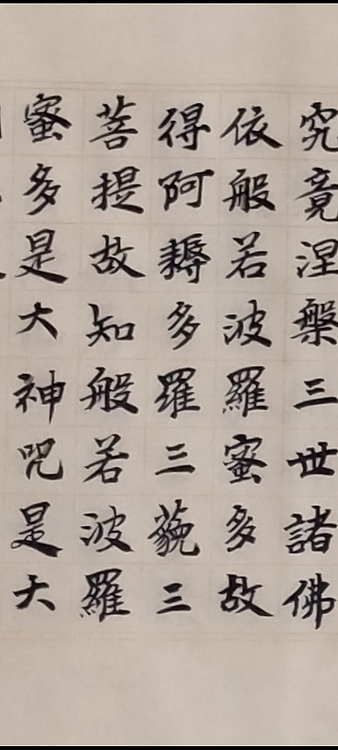 究竟涅槃三世諸佛
依般若波羅蜜多故
得阿耨多羅三藐三
菩提故知般若波羅
蜜多是大神咒是大